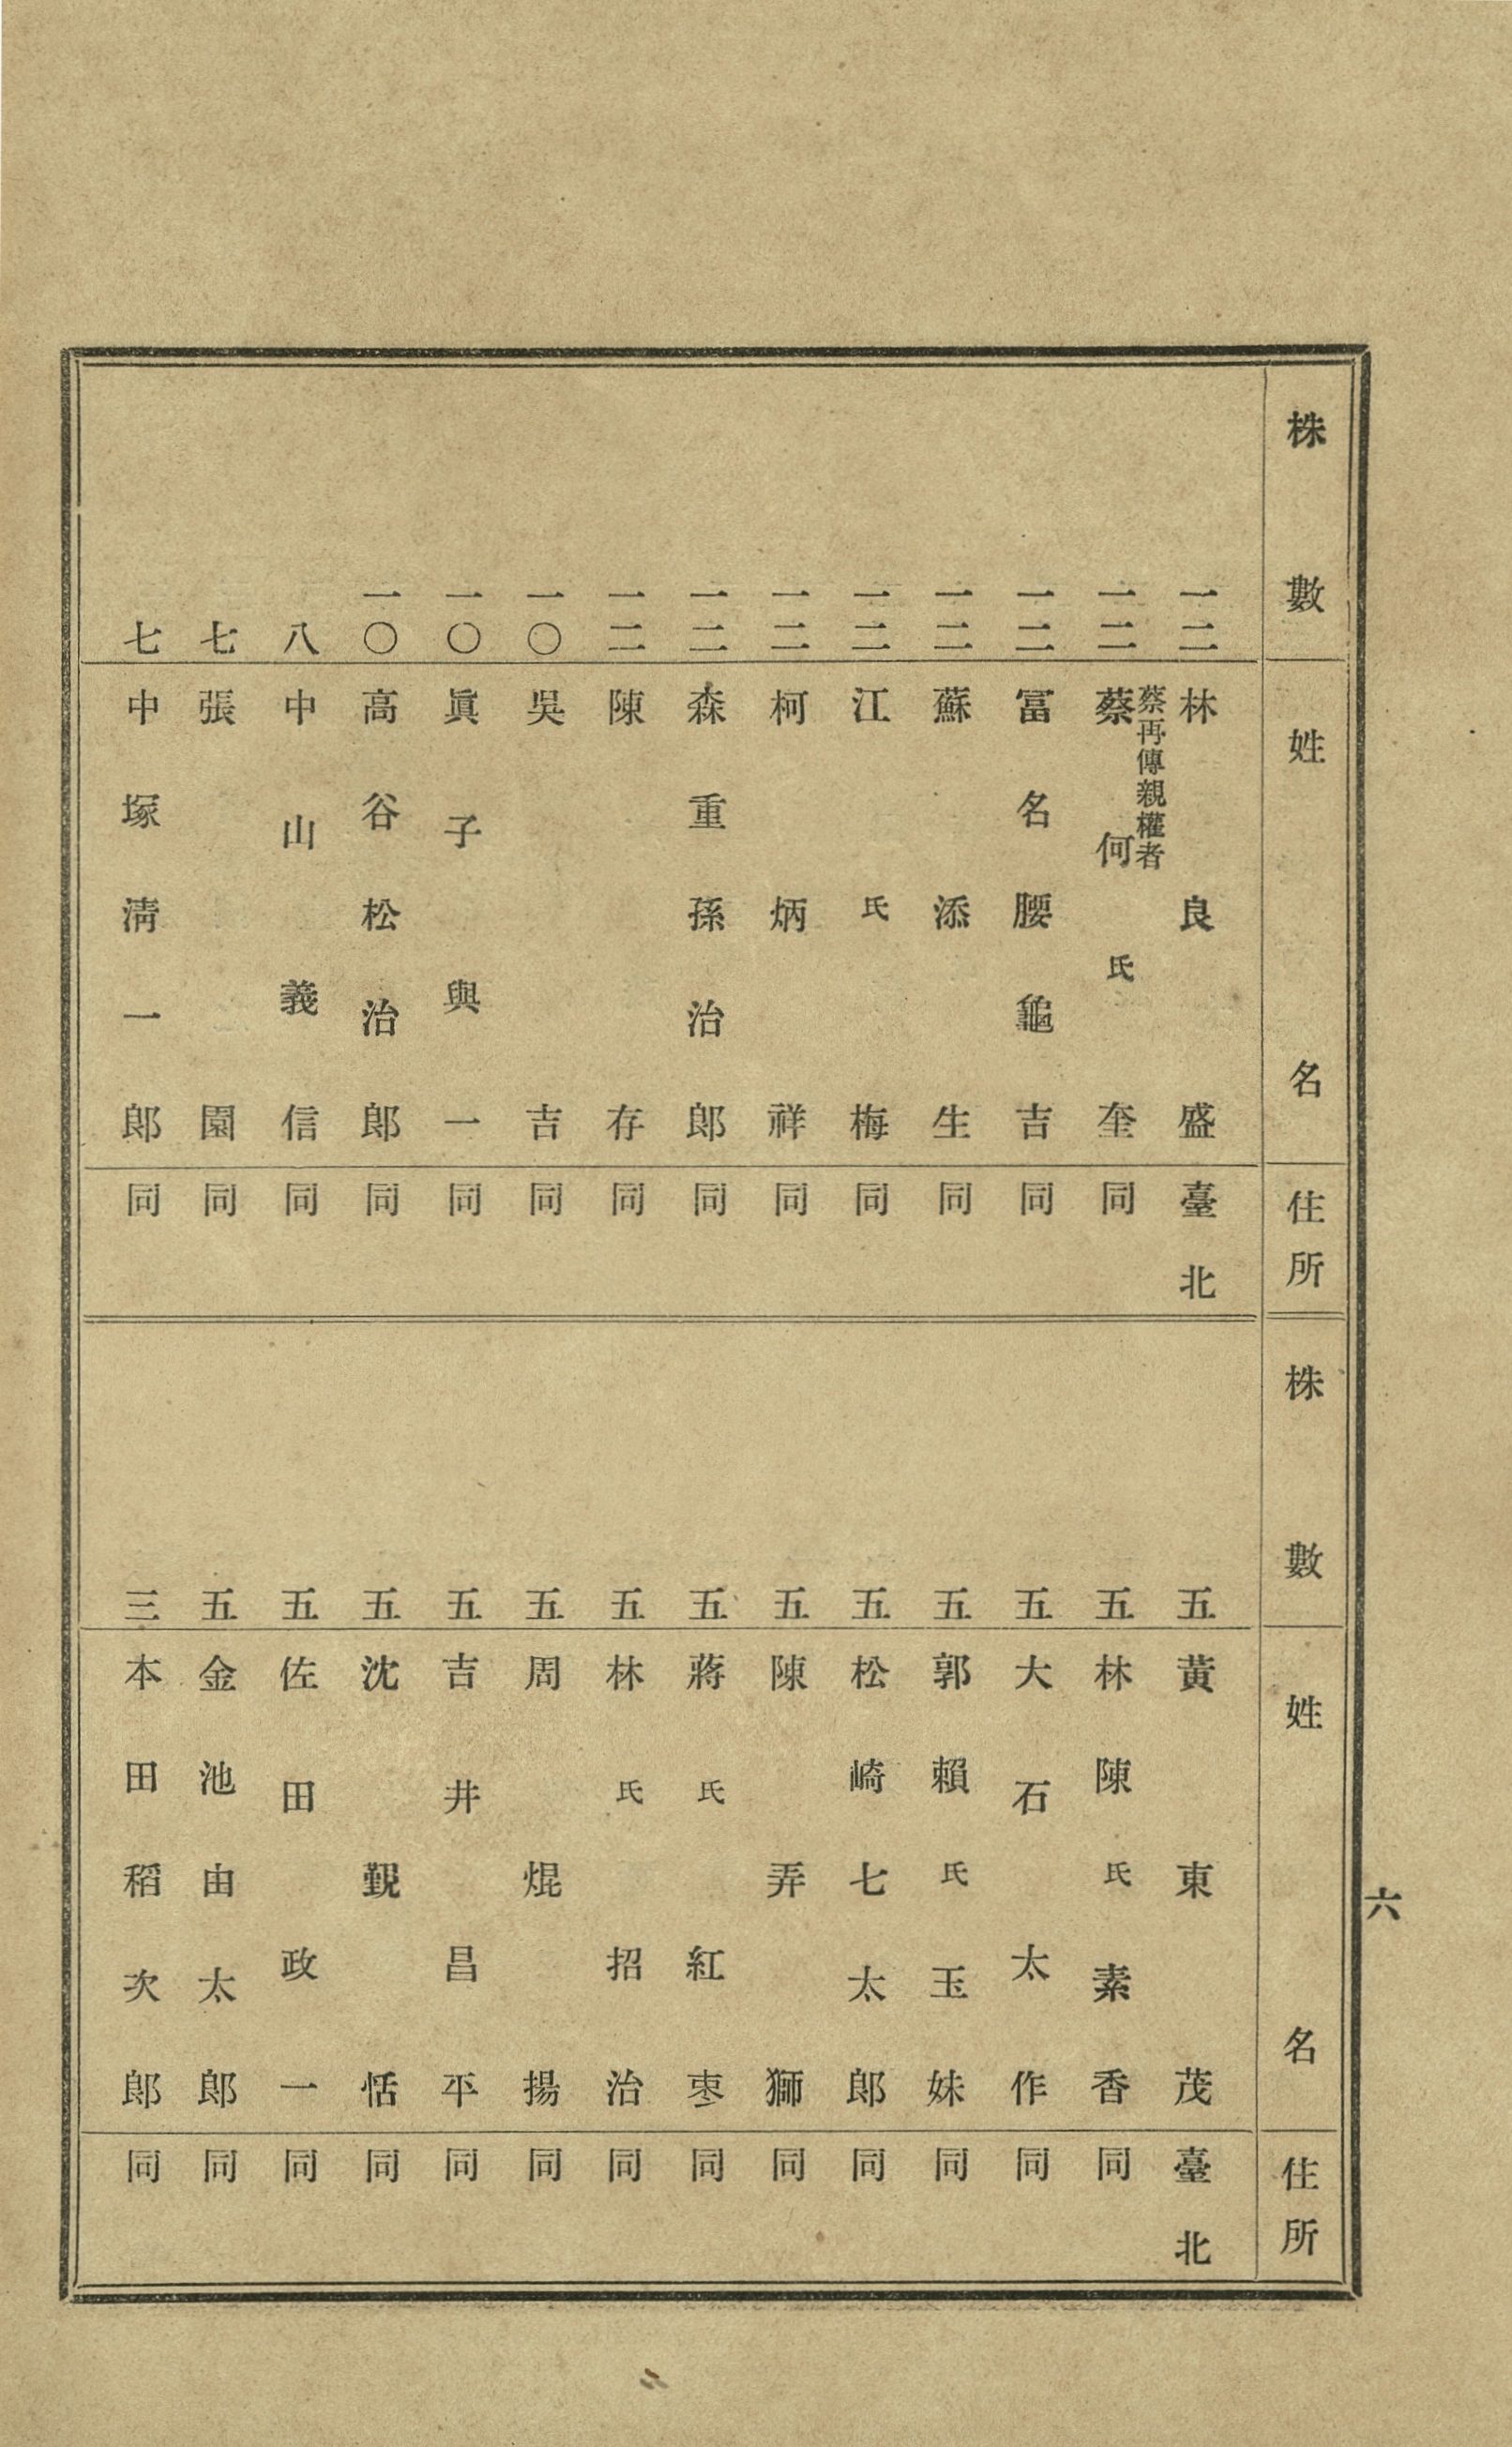 株數 姓名 住所
一二 林良盛 臺北
一二 蔡再傳親權者 蔡何氏奎 同
一二 冨名腰龜吉 同
一二 蘇添生 同
一二 江氏梅 同
一二 柯炳祥 同
一二 森重孫治郎 同
一二 陳存 同
一〇 吳吉 同
一〇 眞子與一 同
一〇 高谷松治郎 同
八 中山義信 同
七 張園 同
七 中塚淸一郎 同
株數 姓名 住所
五 黃東茂 臺北
五 林陳氏素香 同
五 大石太作 同
五 郭賴氏玉妹 同
五 松崎七太郎 同
五 陳弄獅 同
五 蔣氏紅棗 同
五 林氏招治 同
五 周焜揚 同
五 吉井昌平 同
五 沈觐恬 同
五 佐田政一 同
五 金池由太郎 同
三 本田稻次郎 同
六